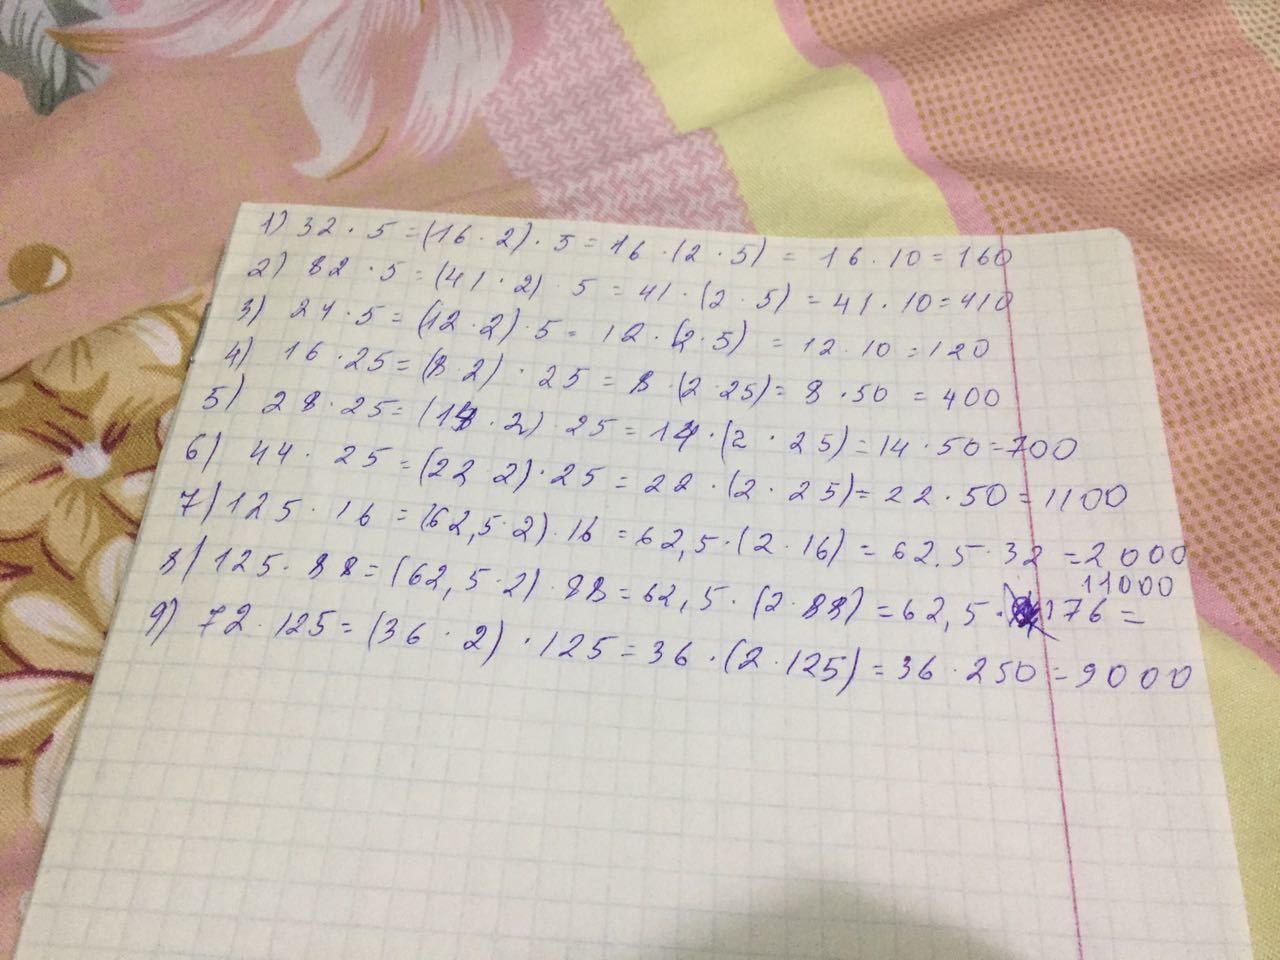 1) 32 · 5 = (16 · 2) · 5 = 16 · (2 · 5) = 16 · 10 = 160
2) 82 · 5 = (41 · 2) · 5 = 41 · (2 · 5) = 41 · 10 = 410
3) 24 · 5 = (12 · 2) · 5 = 12 · (2 · 5) = 12 · 10 = 120
4) 16 · 25 = (8 · 2) · 25 = 8 · (2 · 25) = 8 · 50 = 400
5) 28 · 25 = (14 · 2) · 25 = 14 · (2 · 25) = 14 · 50 = 700
6) 44 · 25 = (22 2) · 25 = 22 · (2 · 25) = 22 · 50 = 1100
7) 125 · 16 = (62,5 · 2) · 16 = 62,5 · (2 · 16) = 62,5 · 32 = 2000
8) 125 · 88 = (62,5 · 2) · 88 = 62,5 · (2 · 88) = 62,5 · 176 = 11000
9) 72 · 125 = (36 · 2) · 125 = 36 · (2 · 125) = 36 · 250 = 9000